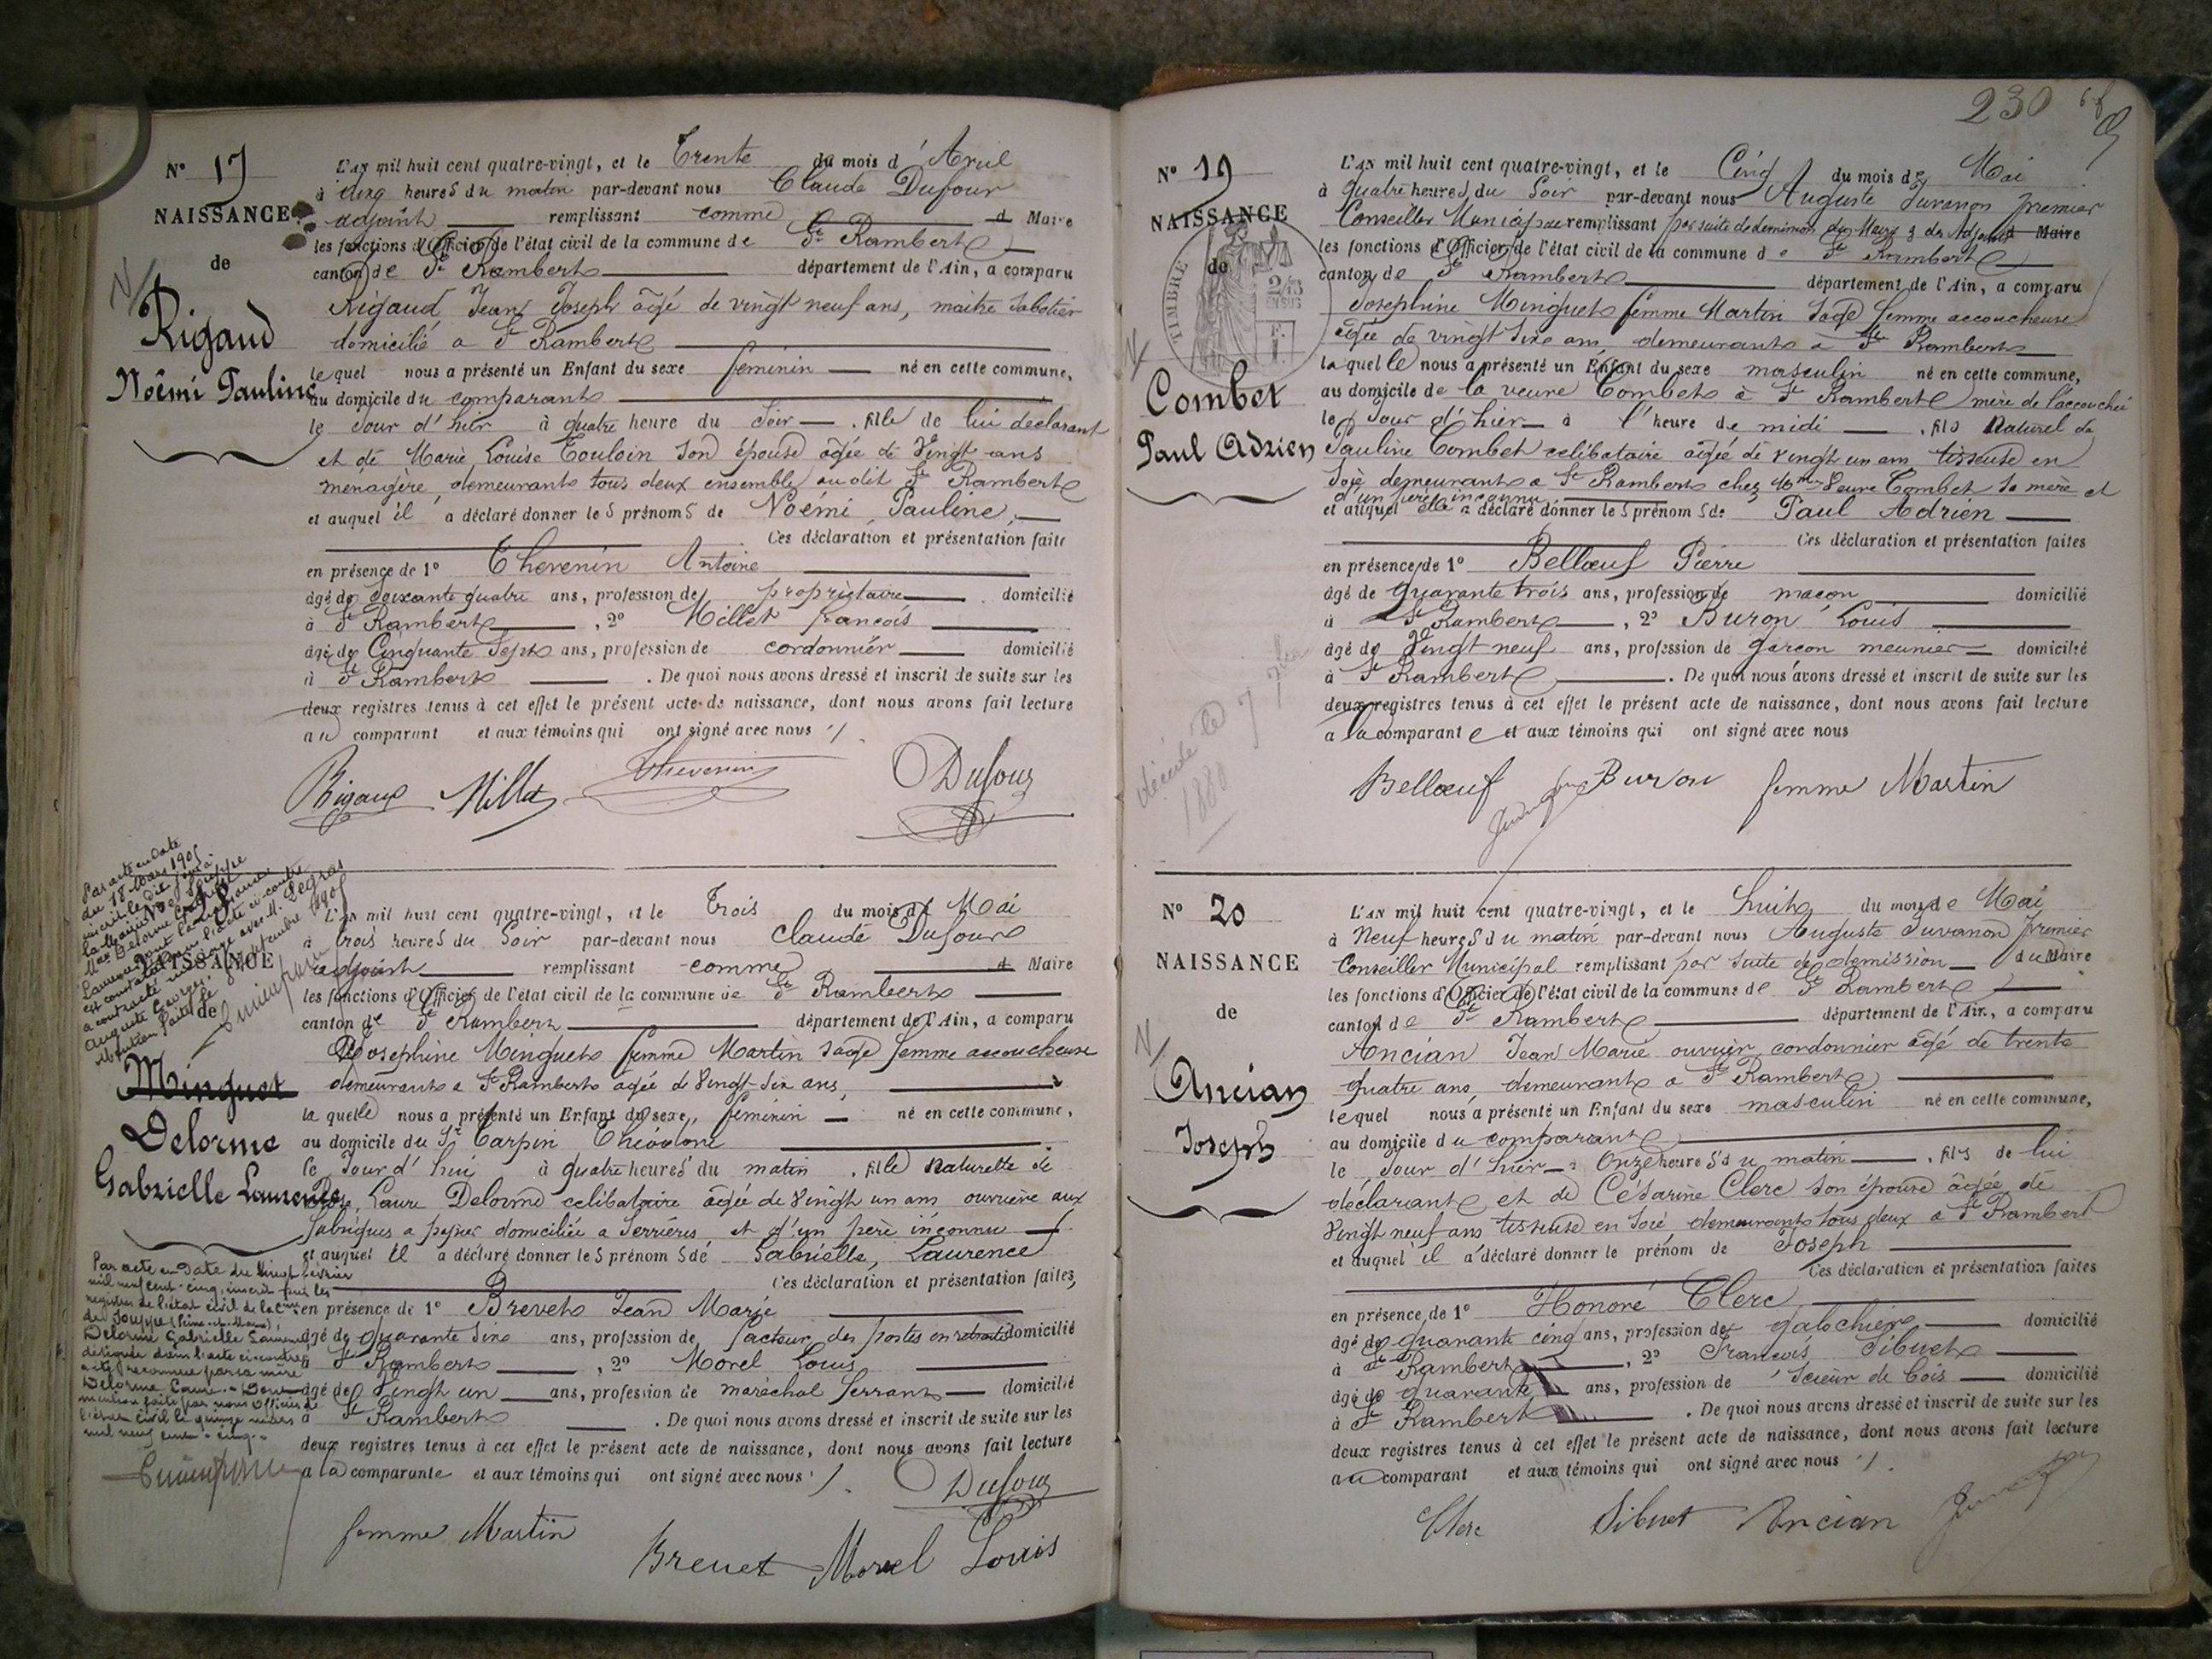 N° 17
NAISSANCE
de
Rigaud
Noëmi Pauline
L'AN mil huit cent quatre-vingt, et le Trente du mois d'Avril
à cinq heures du matin par-devant nous Claude Dufour
adjoint remplissant comme d Maire
les fonctions d'Officier de l'état civil de la commune de St Rambert
canton de St Rambert département de l'Ain, a comparu
Rigaud Jean Joseph âgé de vingt neuf ans, maître sabotier
domicilié a St Rambert
lequel nous a présenté un Enfant du sexe feminin né en cette commune,
au domicile du comparant
le jour d'hier à quatre heure du soir . fille de lui declarant
et de Marie Louise Touloin son épouse âgée de vingt ans
menagère, demeurants tous deux ensemble au dit St Rambert
et auquel il a déclaré donner les prénoms de Noémi, Pauline,
Ces déclaration et présentation faite
en présence de 1° Thevenin Antoine
âgé de Soixante quatre ans, profession de propriètaire domicilié
à St Rambert , 2° Millet françois
âgé de Cinquante Sept ans, profession de cordonnier domicilié
à St Rambert . De quoi nous avons dressé et inscrit de suite sur les
deux registres tenus à cet effet le présent acte de naissance, dont nous avons fait lecture
au comparant et aux témoins qui ont signé avec nous
Rigaud Millet Thevenin Dufour
Par acte en date
du 18 Mars 1905
NAISSANCE
de
Minguet
Delorme
Gabrielle Laurence
L'AN mil huit cent quatre-vingt, et le Trois du mois de Mai
à trois heures du Soir par-devant nous Claude Dufour
adjoint remplissant comme d Maire
les fonctions d'Officier de l'état civil de la commune de St Rambert
canton de St Rambert département de l'Ain, a comparu
Josephine Minguet femme Martin sage femme accoucheuse
demeurant a St Rambert âgée de vingt-six ans,
laquelle nous a présenté un Enfant du sexe feminin né en cette commune,
au domicile du Sr Carpin
le Jour d'hui à quatre heures du matin . fille naturelle de
Rose, Laure Delorme celibataire âgée de vingt un ans ouvrière aux
fabriques a papier domiciliée a Serrières et d'un père inconnu
et auquel il a déclaré donner les prénoms de Gabrielle, Laurence
Ces déclaration et présentation faites,
en présence de 1° Brevet Jean Marie
âgé de quarante sixe ans, profession de facteur des postes en retraite domicilié
à St Rambert , 2° Morel Louis
âgé de vingt un ans, profession de maréchal ferrant domicilié
à St Rambert . De quoi nous avons dressé et inscrit de suite sur les
deux registres tenus à cet effet le présent acte de naissance, dont nous avons fait lecture
a la comparante et aux témoins qui ont signé avec nous
Dufour
femme Martin Brevet Morel Louis
Par acte en date du vingt février
mil neuf cent-cinq, inscrit sur les
registres de l'état civil de la cne
de Souppe (Seine-et-Marne),
Delorme Gabrielle Laurence
désignée dans l'acte ci-contre,
a été reconnue par sa mère
Delorme Laure.- Dont
mention faite par nous Officier de
l'état civil le quinze mars
mil neuf cent-cinq.-
230
N° 19
NAISSANCE
de
TIMBRE
Combet
Paul Adrien
décédé le 7 7bre
1880
L'AN mil huit cent quatre-vingt, et le Cinq du mois de Mai
à quatre heures du Soir par-devant nous Auguste Juvanon premier
Conseiller Municipal remplissant par suite de demission du Maire & de l'Adjoint d Maire
les fonctions d'Officier de l'état civil de la commune de St Rambert
canton de St Rambert département de l'Ain, a comparu
Josephine Minguet femme Martin Sage femme accoucheuse
âgée de vingt sixe ans, demeurant a St Rambert
laquelle nous a présenté un Enfant du sexe masculin né en cette commune,
au domicile de la veuve Combet à St Rambert mère de l'accouchée
le Jour d'hier à l'heure de midi . fils Naturel de
Pauline Combet celibataire âgée de vingt un ans tisseuse en
soie demeurant a St Rambert chez Mme Veuve Combet sa mère et
d'un père inconnu
et auquel elle a déclaré donner les prénoms de Paul Adrien
Ces déclaration et présentation faites
en présence de 1° Bellœuf Pierre
âgé de quarante trois ans, profession de maçon domicilié
à St Rambert , 2° Buron Louis
âgé de vingt neuf ans, profession de garçon meunier domicilié
à St Rambert . De quoi nous avons dressé et inscrit de suite sur les
deux registres tenus à cet effet le présent acte de naissance, dont nous avons fait lecture
a la comparante et aux témoins qui ont signé avec nous
Bellœuf Buron femme Martin
N° 20
NAISSANCE
de
Ancian
Joseph
L'AN mil huit cent quatre-vingt, et le huit du mois de Mai
à Neuf heures du matin par-devant nous Auguste Juvanon Premier
Conseiller Municipal remplissant par suite de demission du Maire
les fonctions d'Officier de l'état civil de la commune de St Rambert
canton de St Rambert département de l'Ain, a comparu
Ancian Jean Marie ouvrier cordonnier âgé de trente
quatre ans, demeurant a St Rambert
lequel nous a présenté un Enfant du sexe masculin né en cette commune,
au domicile du comparant
le Jour d'hier à Onze heures du matin . fils de lui
déclarant et de Césarine Clerc son épouse âgée de
vingt neuf ans tisseuse en soie demeurants tous deux a St Rambert
et auquel il a déclaré donner le prénom de Joseph
Ces déclaration et présentation faites
en présence de 1° Honoré Clerc
âgé de quarante cinq ans, profession de galochier domicilié
à St Rambert , 2° François Sibuet
âgé de quarante ans, profession de Scieur de bois domicilié
à St Rambert . De quoi nous avons dressé et inscrit de suite sur les
deux registres tenus à cet effet le présent acte de naissance, dont nous avons fait lecture
au comparant et aux témoins qui ont signé avec nous
Clerc Sibuet Ancian